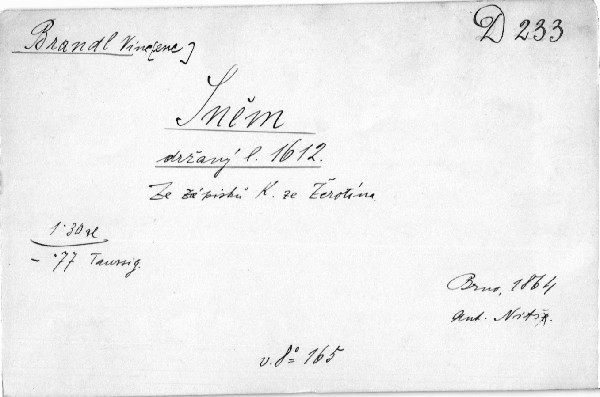 Brandl Vinc[enc]
D 233
Sněm
držaný l. 1612.
Ze zápisků K. ze Žerotína
1·30 zl
- ·77 Taussig.
Brno, 1864
Ant. Nitsch.
v. 8° 165